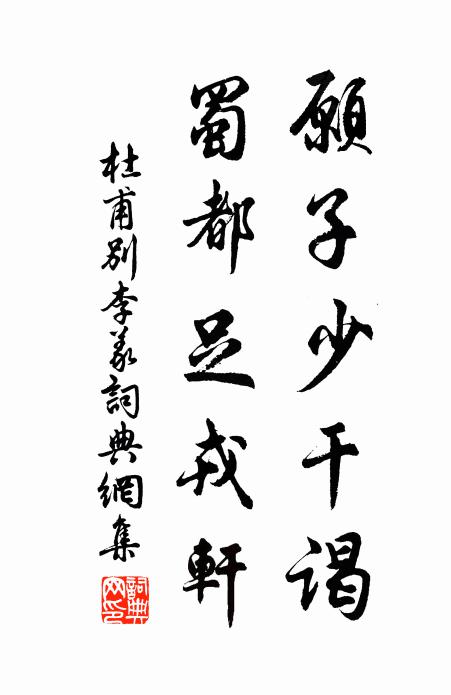 願子少干謁
蜀都足戎軒
杜甫別李義詞典網集
詞典网印